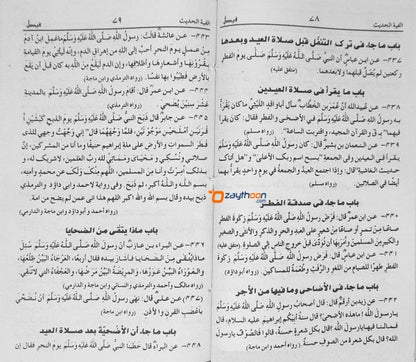 الفية الحديث ٧٨ فيصل
باب ما جاء فى ترك التنفل قبل صلاة العيد وبعدها
٣٢٧- عن ابن عباسٍ أن النبى صَلَّى اللَّهُ عَلَيْهِ وَسَلَّمَ صَلَّى يوم الفطر
ركعتين لم يُصَلِّ قبلهما ولابعدهما. (متفق عليه)
باب ما يقرأ فى صلاة العيدين
٣٢٨- عن عبيد الله أنَّ عمر بن الخطاب سأل اباواقد اللَّيْثى ماكان يَقْرَأُ
به رسول اللّٰهِ صَلَّى اللَّهُ عَلَيْهِ وَسَلَّمَ فى الاضحى والفطر فقال كان يقرأ
فيهما "بـ ق والقرآن المجيد، واقتربت الساعة" (رواه مسلم)
٣٢٩- عن النعمان بن بشيرٍ قال: كان رسول الله صَلَّى اللَّهُ عَلَيْهِ وَسَلَّمَ
يقرأ فى العيدين وفى الجمعة "بسبح اسم ربك الأعلىٰ" و"هل أتاك
حديث الغاشية" قال واذا اجتمع العيد والجمعة فى يوم واحدٍ قرأ بهما
أيضًا فى الصلاتين. (رواه مسلم)
باب ما جاء فى صدقة الفطر
٣٣٠- عن ابن عمرٍ قال: فَرَضَ رسول الله صَلَّى اللَّهُ عَلَيْهِ وَسَلَّمَ زكوةَ الفطرِ
صاعًا من تمرٍ أو صاعًا من شعيرٍ على العبد والحر والذكر والأنثى والصغير
والكبير من المسلمين وأمر بها أن تُؤَدّى قبل خروج الناس إلى الصلوة.
٣٣١- عن ابن عباس قال: فرض رسول الله صَلَّى اللَّهُ عَلَيْهِ وَسَلَّمَ زكوة
الفطرِ طهرًا للصيام من اللغو والرفث وطعمة للمساكين. (رواه أبوداؤد)
باب ما جاء فى الأضاحى وما فيها من الأجر
٣٣٢- عن زيد بن أرقم قال: قال أصحاب رسول الله صَلَّى اللَّهُ عَلَيْهِ وَسَلَّمَ
يا رسول الله! ماهذه الأضاحى؟ قال: سنة أبيكم إبراهيم عليه السلام، قال
فما لنا فيها يا رسول الله؟ قال: بكل شعرة حسنة، قالوا: فالصوف يا رسول
الله! قال: بكل شعرة من الصوف حسنة.
الفية الحديث ٧٩ فيصل
٣٣٣- عن عائشةَ قالت: رسول اللّٰهِ صَلَّى اللَّهُ عَلَيْهِ وَسَلَّمَ ماعمل ابن آدم
من عملٍ يوم النحرِ أحب إلى الله من إهراق الدم، وإنه ليأتى يوم القيامة
بقرونها وأشعارها وأظلافها، وإن الدم ليقع من الله بمكانٍ قبل أن يقع
بالأرض فطيبوا بها نفسًا. (رواه الترمذى وابن ماجة)
٣٣٤- عن ابن عمر قال: أقام رسول اللّٰهِ صَلَّى اللَّهُ عَلَيْهِ وَسَلَّمَ بالمدينةِ
عشرَ سنين يُضَحِّى. (رواه الترمذى)
٣٣٥- عن جابرٍ قال: ذبح النبى صَلَّى اللَّهُ عَلَيْهِ وَسَلَّمَ يوم الذبح كبشين
أقرنين أملحين موجوئين، فلما وجههما قال: إنى وجهت وجهى للذى فطر
السمٰوات والأرض على ملة إبراهيم حنيفًا وما أنا من المشركين، إن
صلاتى ونسكى ومحياى ومماتى لله رب العٰلمين، لاشريك له، و
بذٰلك أمرت وأنا من المسلمين، اللهم منك ولك عن محمدٍ وأمته،
بسم الله الله أكبر، ثم ذبح. وفى رواية لاحمد وابى داود والترمذى
ذبح بيده وقال بسم الله والله اكبر اللهم هذا عنى عمن لم يضح من أمتى.
(رواه احمد وأبوداؤد وابن ماجة والدارمى)
باب ماذا يتقى من الضحايا
٣٣٦- عن البراء بن عازبٍ أن رسول اللّٰه صَلَّى اللَّهُ عَلَيْهِ وَسَلَّمَ سُئل
ماذا يُتَّقى من الضحايا فأشار بيده فقال: أربعًا، العرجاءُ البيّن ظلعُها،
والعوراءُ البيّن عورُها، والمريضةُ البيّن مرضُها، والعجفاءُ التى لاتُنقى.
(رواه مالك وأحمد والترمذى وابوداود والنسائى وابن ماجة والدارمى)
(٣٣٧) عن علي قال: نهى رسول الله صَلَّى اللَّهُ عَلَيْهِ وَسَلَّمَ أن نُضَحِّىَ
بأعضب القرن والأذن. (رواه ابن ماجة)
باب ما جاء أن الأضحيّة بعد صلاة العيد
٣٣٨- عن البراء قال خطبنا النبى صَلَّى اللَّهُ عَلَيْهِ وَسَلَّمَ يوم النحر فقال إن
zaythoon.com